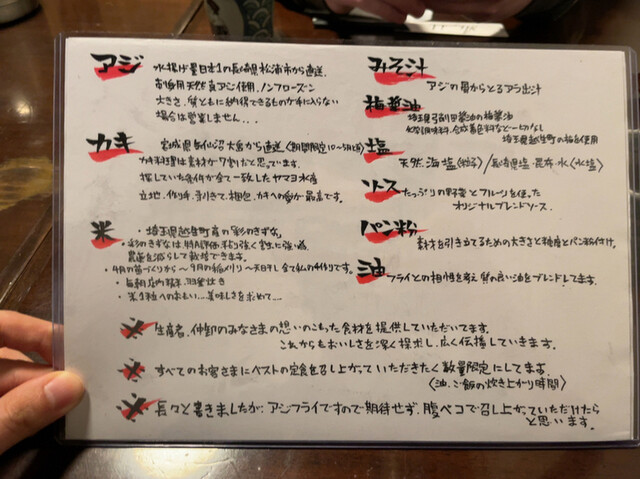 アジ
水揚げ量日本1の長崎県松浦市から直送。
刺身用天然真アジ使用、ノンフローズン
大きさ、質ともに納得できるものが手に入らない
場合は営業しません...
カキ
宮城県気仙沼大島から直送(期間限定10〜5月上旬)
カキ料理は素材が7割だと思っています。
探していた条件が全て一致したヤマヨ水産
立地、作り手、手引きで、梱包、カキへの愛が最高です。
米
・埼玉県越生町産の「彩のきずな」
・彩のきずなは特A評価、粘り強く、暑さに強い為
農薬を減らして栽培できます。
・4月の苗づくりから〜9月の稲刈り〜天日干し全て私の手作りです。
・毎朝店内精米、羽釜炊き
・米1粒へのおもい...美味しさを求めて...
みそ汁
アジの骨からとるアラ出汁
梅醤油
埼玉県弓削田醤油の梅醤油
化学調味料、合成着色料など一切なし
埼玉県越生町の梅を使用
塩
天然海塩(粒子)/長崎県塩・昆布・水〈水塩〉
ソース
たっぷりの野菜とフルーツを使った
オリジナルブレンドソース。
パン粉
素材を引き立てるための大きさと糖度とパン粉付け。
油
フライとの相性を考え質の良い油をブレンドしてます。
※生産者、仲卸のみなさまの想いのこもった食材を提供していただいてます。
これからもおいしさを深く探求し、広く伝播していきます。
※すべてのお客さまにベストの定食を召し上がっていただきたく数量限定にしてます。
〈油、ご飯の炊き上がり時間〉
※長々と書きましたが、アジフライですので期待せず、腹ペコで召し上がっていただけたら
と思います。